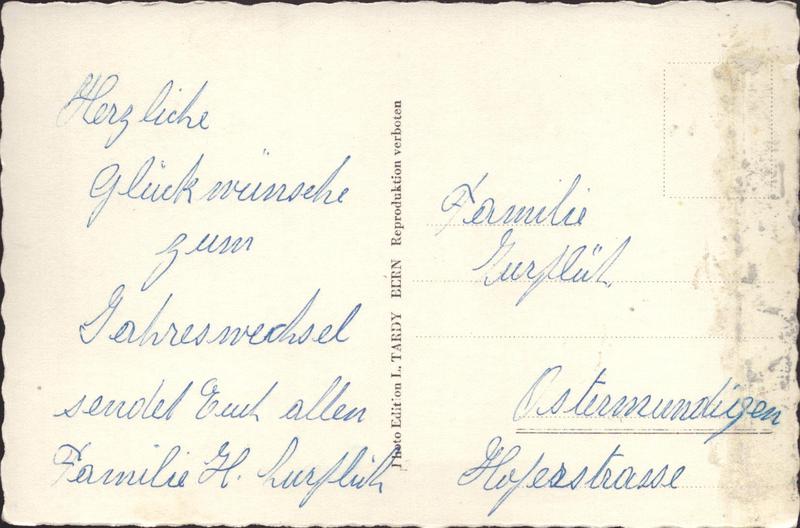 Herzliche
Glückwünsche
zum
Jahreswechsel
sendet Euch allen
Familie H. Zurflüh
Photo Edition L. TARDY BERN Reproduktion verboten
Familie
Zurflüh
Ostermundigen
Hoferstrasse